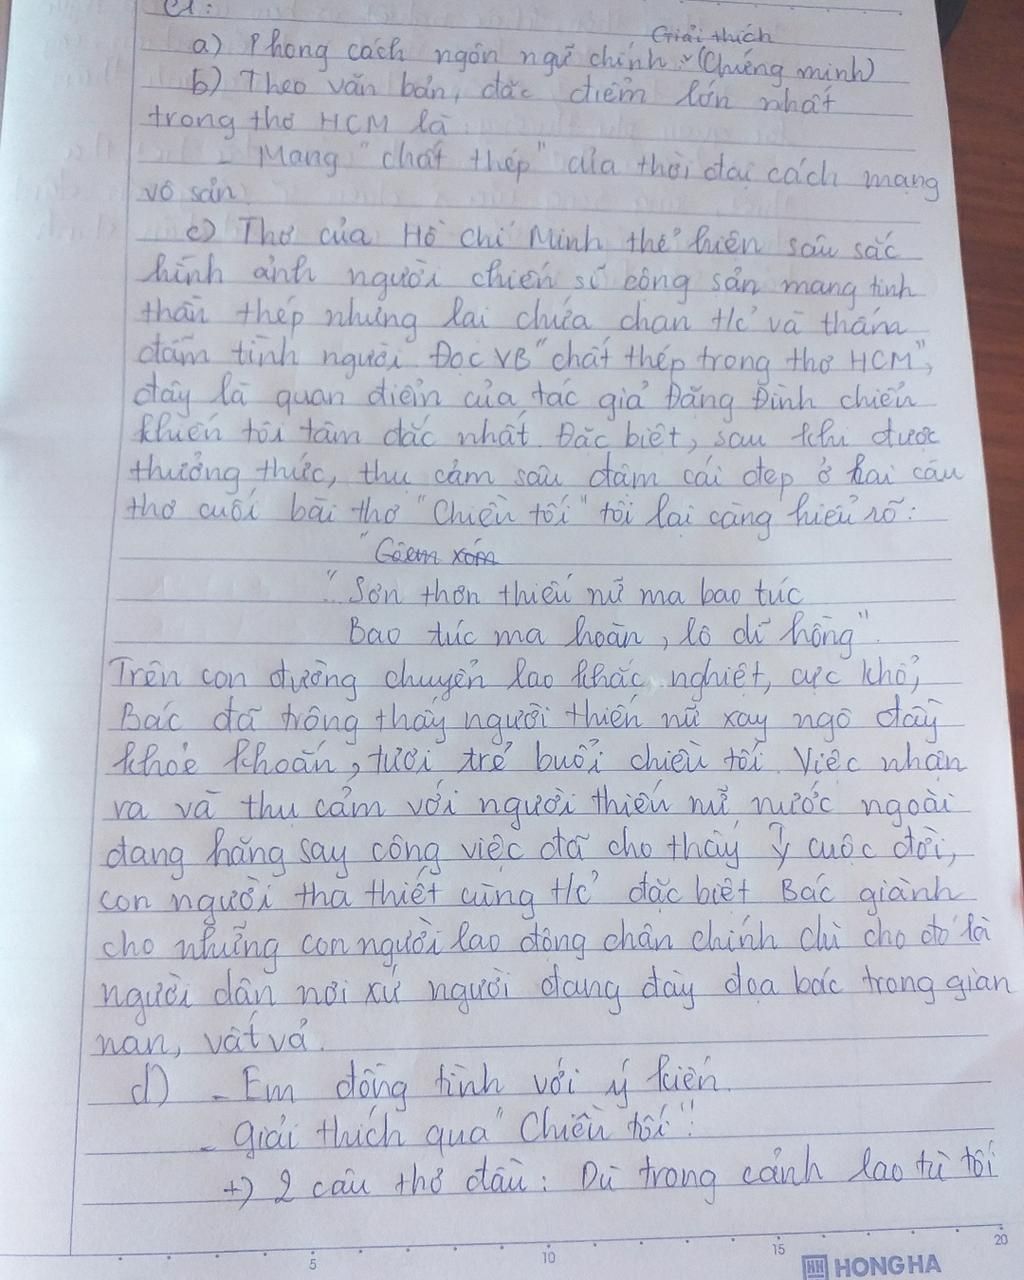 C1:
Giải thích
a) Phong cách ngôn ngữ chính: (Chứng minh)
b) Theo văn bản, đặc điểm lớn nhất
trong thơ HCM là
- Mang "chất thép" của thời đại cách mạng
vô sản
c) Thơ của Hồ Chí Minh thể hiện sâu sắc
hình ảnh người chiến sĩ cộng sản mang tinh
thần thép nhưng lại chứa chan t/c' và thắm
đẫm tình người. Đọc VB "chất thép trong thơ HCM",
đây là quan điểm của tác giả Đặng Đình chiến
khiến tôi tâm đắc nhất. Đặc biệt, sau khi được
thưởng thức, thụ cảm sâu đậm cái đẹp ở hai câu
thơ cuối bài thơ "Chiều tối" tôi lại càng hiểu rõ:
"Sơn thôn thiếu nữ ma bao túc
Bao túc ma hoàn, lô dĩ hồng".
Trên con đường chuyển lao khắc nghiệt, cực khổ,
Bác đã trông thấy người thiến nữ xay ngô đầy
khỏe khoắn, tươi trẻ buổi chiều tối. Việc nhận
ra và thụ cảm với người thiếu nữ nước ngoài
đang hăng say công việc đã cho thấy ty cuộc đời,
con người tha thiết cùng t/c' đặc biệt Bác giành
cho những con người lao động chân chính chỉ cho đó là
người dân nơi xứ người đang đày đọa bác trong gian
nan, vất vả.
d) - Em đồng tình với ý kiến.
- Giải thích qua "Chiều tối":
+) 2 câu thơ đầu: Dù trong cảnh lao tù tối
5
10
15
20
HH HONG HA